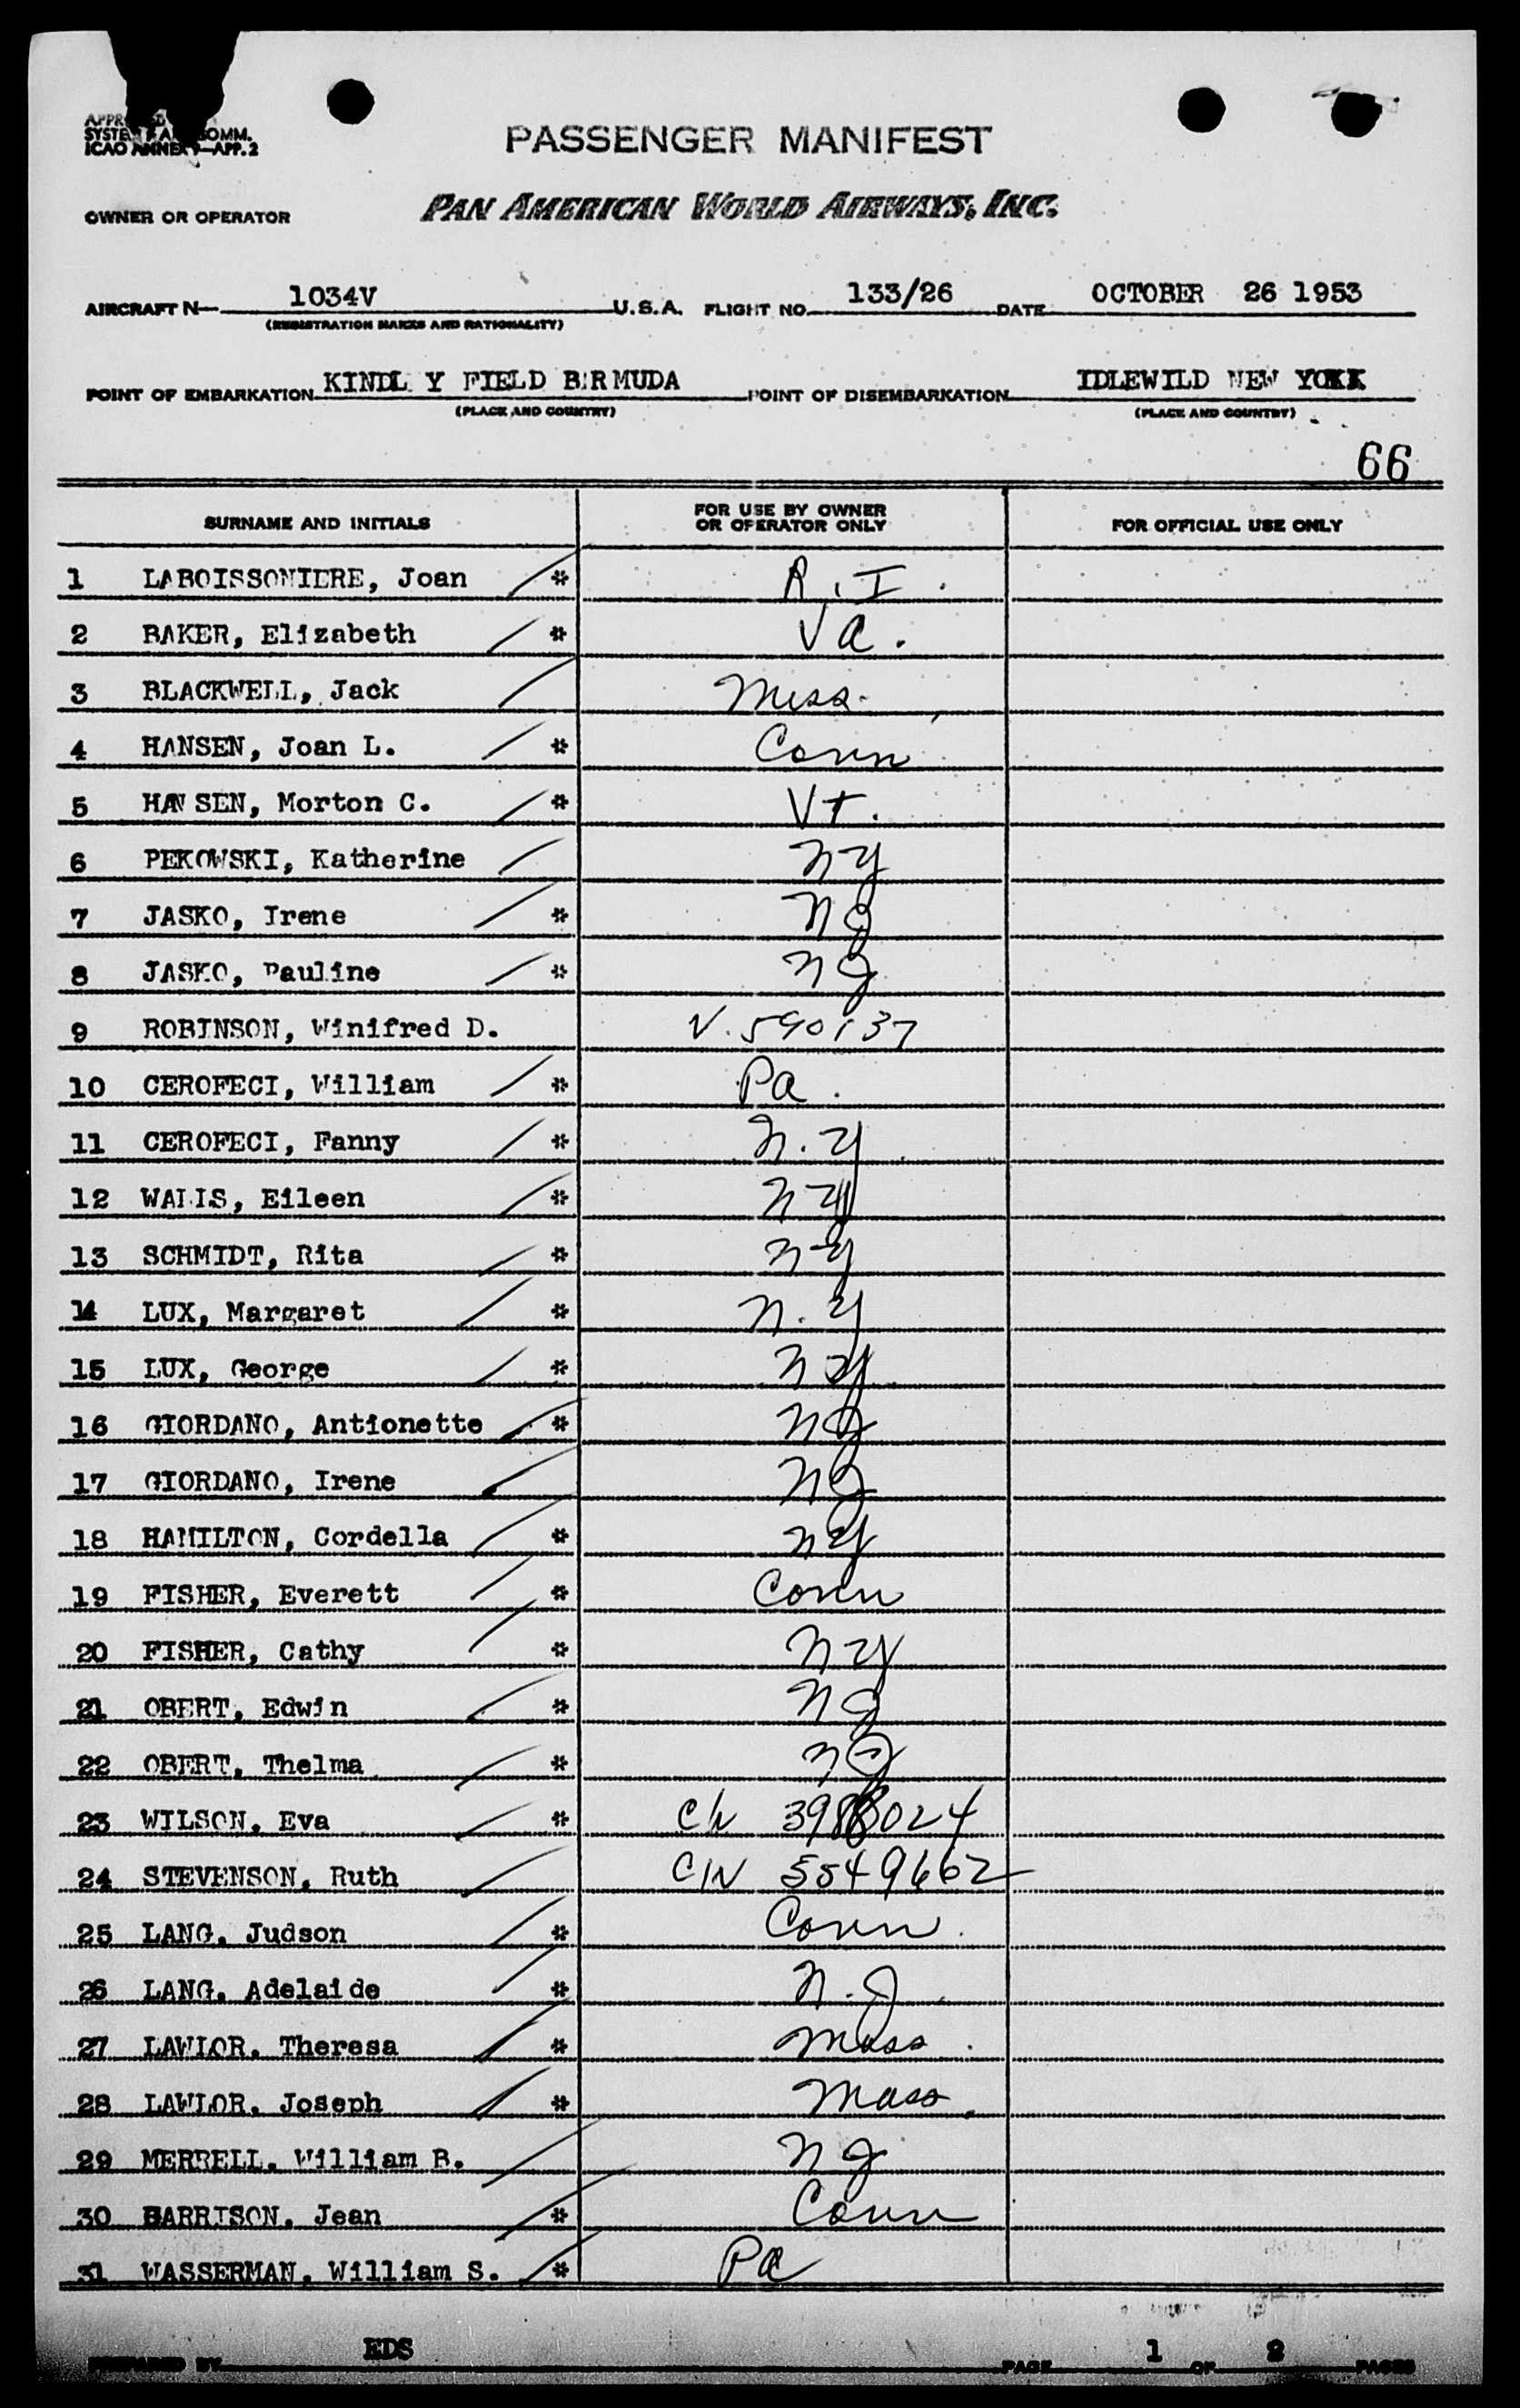 PASSENGER MANIFEST
ICAO ANNEX 9—APP. 2
OWNER OR OPERATOR PAN AMERICAN WORLD AIRWAYS, INC.
AIRCRAFT N— 1034V U.S.A. FLIGHT NO. 133/26 DATE OCTOBER 26 1953
(REGISTRATION MARKS AND NATIONALITY)
POINT OF EMBARKATION KINDL Y FIELD BERMUDA POINT OF DISEMBARKATION IDLEWILD NEW YORK
(PLACE AND COUNTRY) (PLACE AND COUNTRY)
66
SURNAME AND INITIALS FOR USE BY OWNER OR OPERATOR ONLY FOR OFFICIAL USE ONLY
1 LABOISSONIERE, Joan / * R.I.
2 BAKER, Elizabeth / * Va.
3 BLACKWELL, Jack / Miss.
4 HANSEN, Joan L. / * Conn
5 HANSEN, Morton C. / * Vt.
6 PEKOWSKI, Katherine / NY
7 JASKO, Irene / * NJ
8 JASKO, Pauline / * NJ
9 ROBINSON, Winifred D. V. 590137
10 CEROFECI, William / * Pa.
11 CEROFECI, Fanny / * N.Y
12 WALIS, Eileen / * NY
13 SCHMIDT, Rita / * NY
14 LUX, Margaret / * N.Y
15 LUX, George / * NY
16 GIORDANO, Antionette / * NJ
17 GIORDANO, Irene / NJ
18 HAMILTON, Cordella / * NY
19 FISHER, Everett / * Conn
20 FISHER, Cathy / * NY
21 OBERT, Edwin / * NJ
22 OBERT, Thelma / * NJ
23 WILSON, Eva / * C/N 3988024
24 STEVENSON, Ruth / C/N 5549662
25 LANG, Judson / * Conn.
26 LANG, Adelaide / * N.J.
27 LAWLOR, Theresa / * Mass.
28 LAWLOR, Joseph / * Mass.
29 MERRELL, William B. / NJ
30 HARRISON, Jean / * Conn
31 WASSERMAN, William S. / * Pa
PREPARED BY EDS PAGE 1 OF 2 PAGES